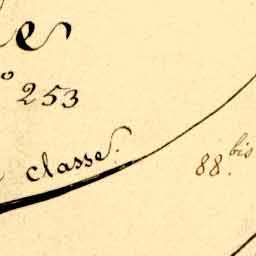 le
º 253
classe.
88.bis